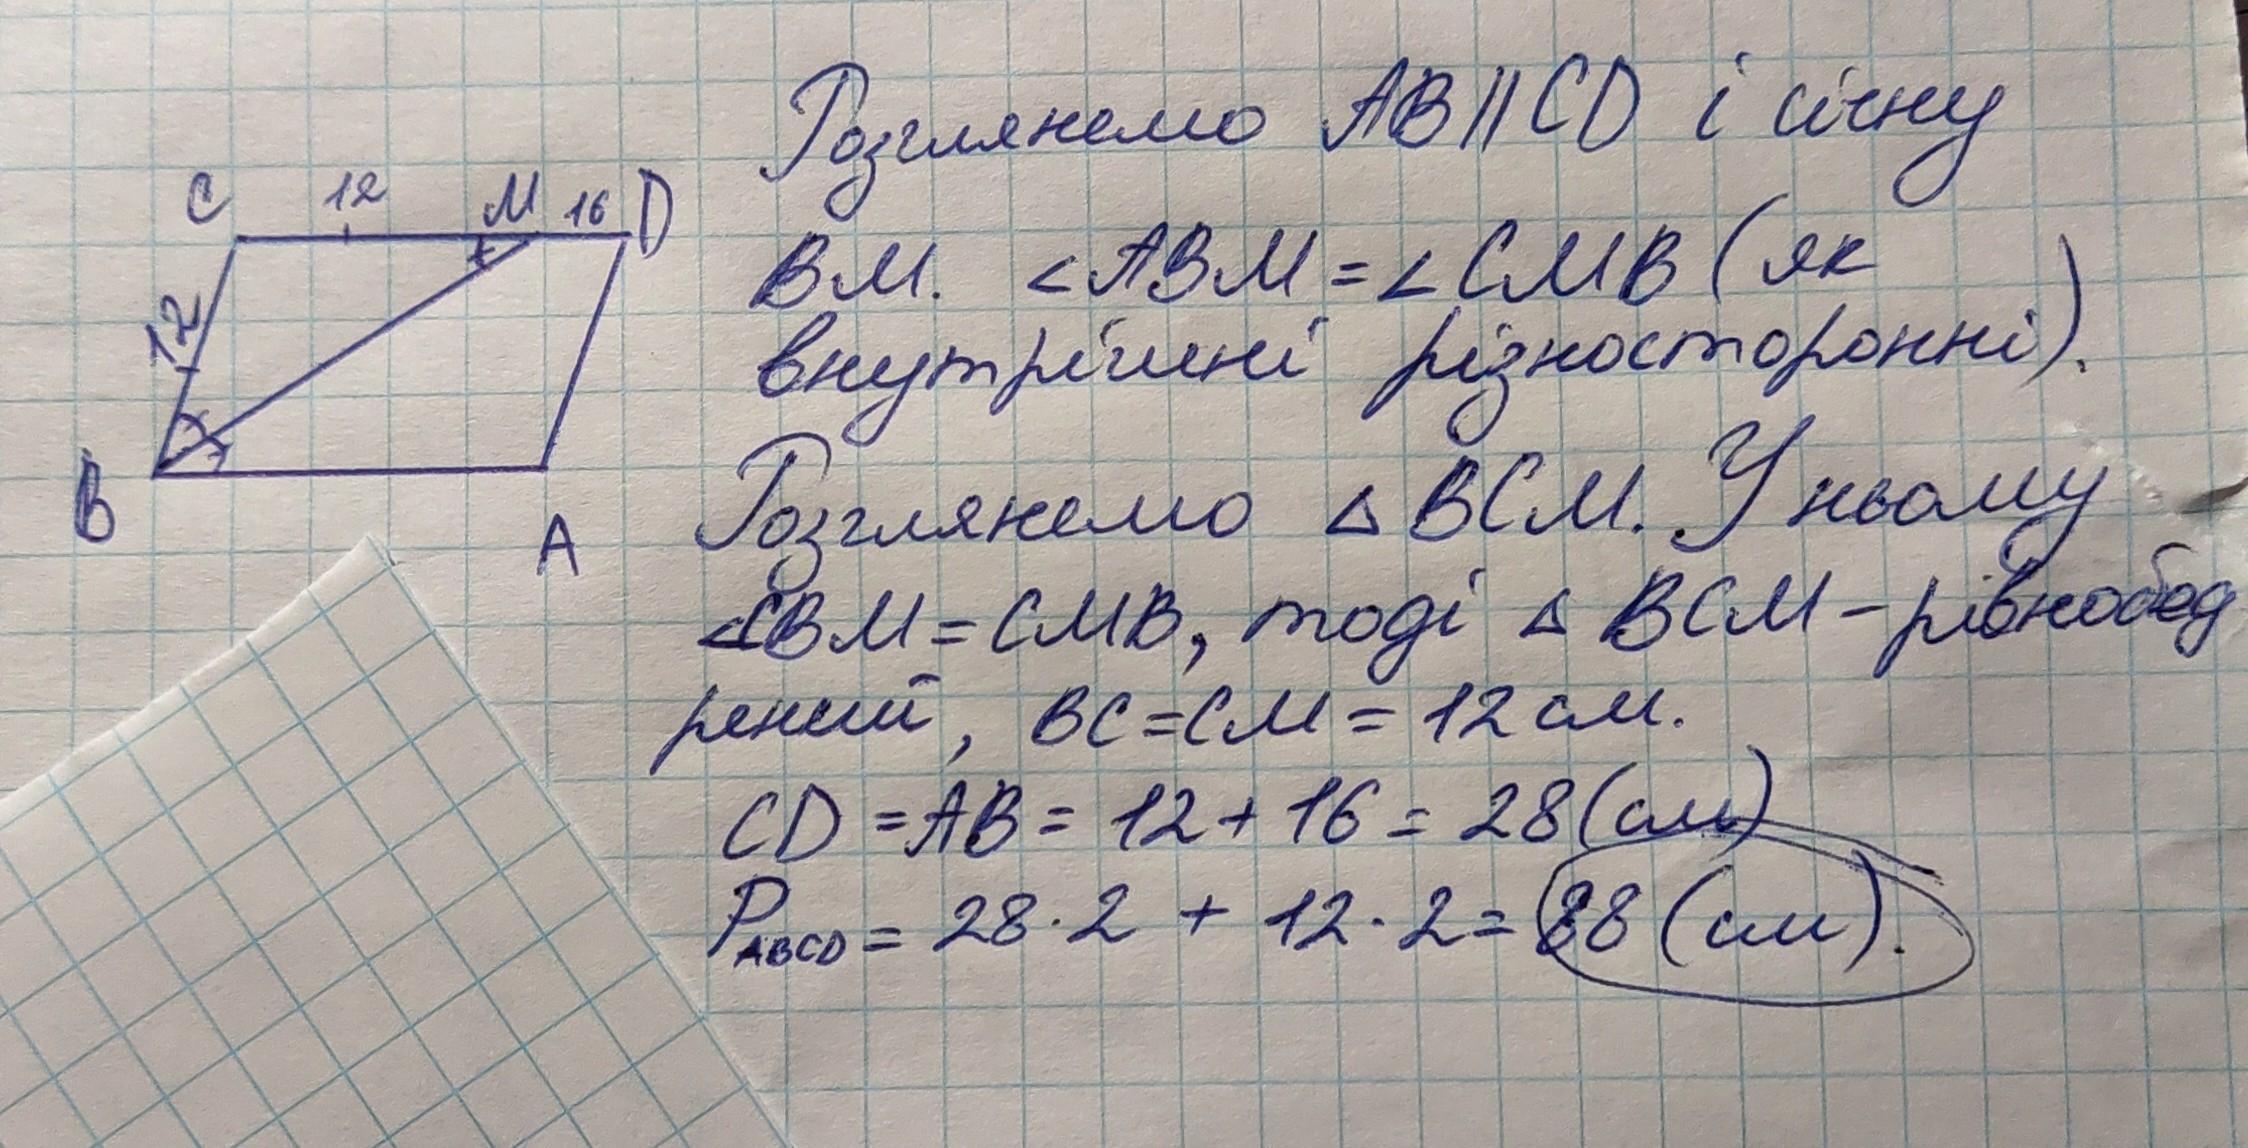 C 12 M 16 D
12
B
A
Розглянемо AB||CD і січну
BM. <ABM=<CMB (як
внутрішні різносторонні).
Розглянемо △BCM. У ньому
<CBM=CMB, тоді △ BCM – рівнобед
рений, BC=CM=12 см.
CD=AB=12+16=28(см)
PABCD=28·2+12·2=88(см).